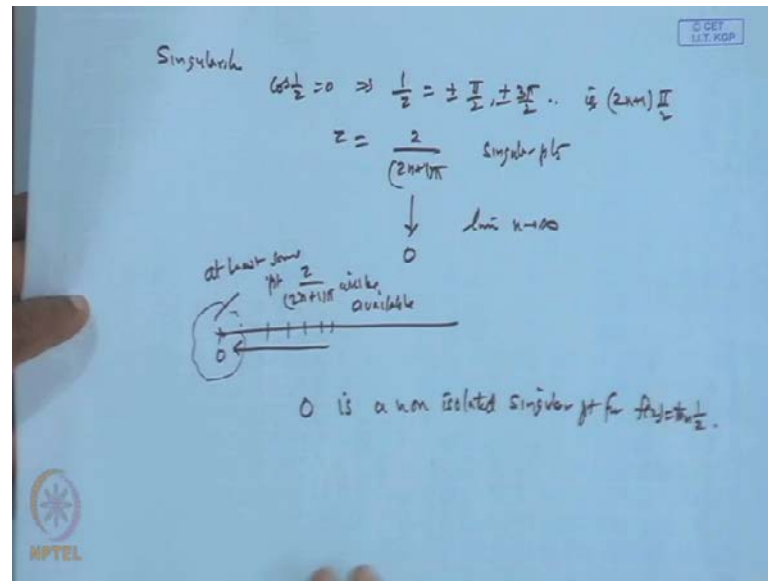 © CET
I.I.T. KGP
Singularity
cos 1/z = 0 ⇒ 1/z = ± π/2, ± 3π/2 .. is (2n+1) π/2
z = 2/(2n+1)π Singular pts
↓ lim n→∞
0
at least some
pt 2/(2n+1)π will be
available
0
0 is a non isolated singular pt for f(z) = tan 1/z.
NPTEL